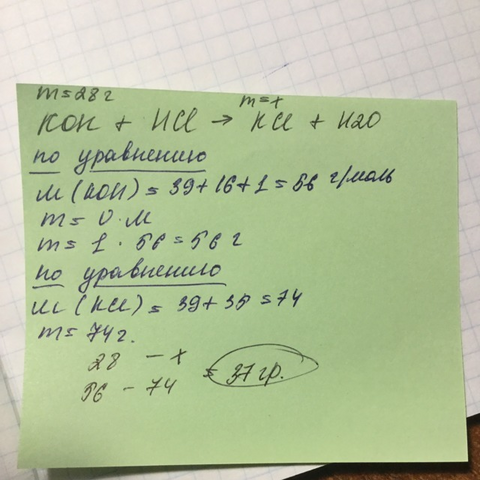 m=28г
m=x
KOH + HCl → KCl + H2O
по уравнению
M(KOH) = 39+16+1=56 г/моль
m= υ·M
m= 1 · 56 = 56 г
по уравнению
M(KCl) = 39+35 = 74
m= 74 г.
28 – x
56 – 74 = 37 гр.